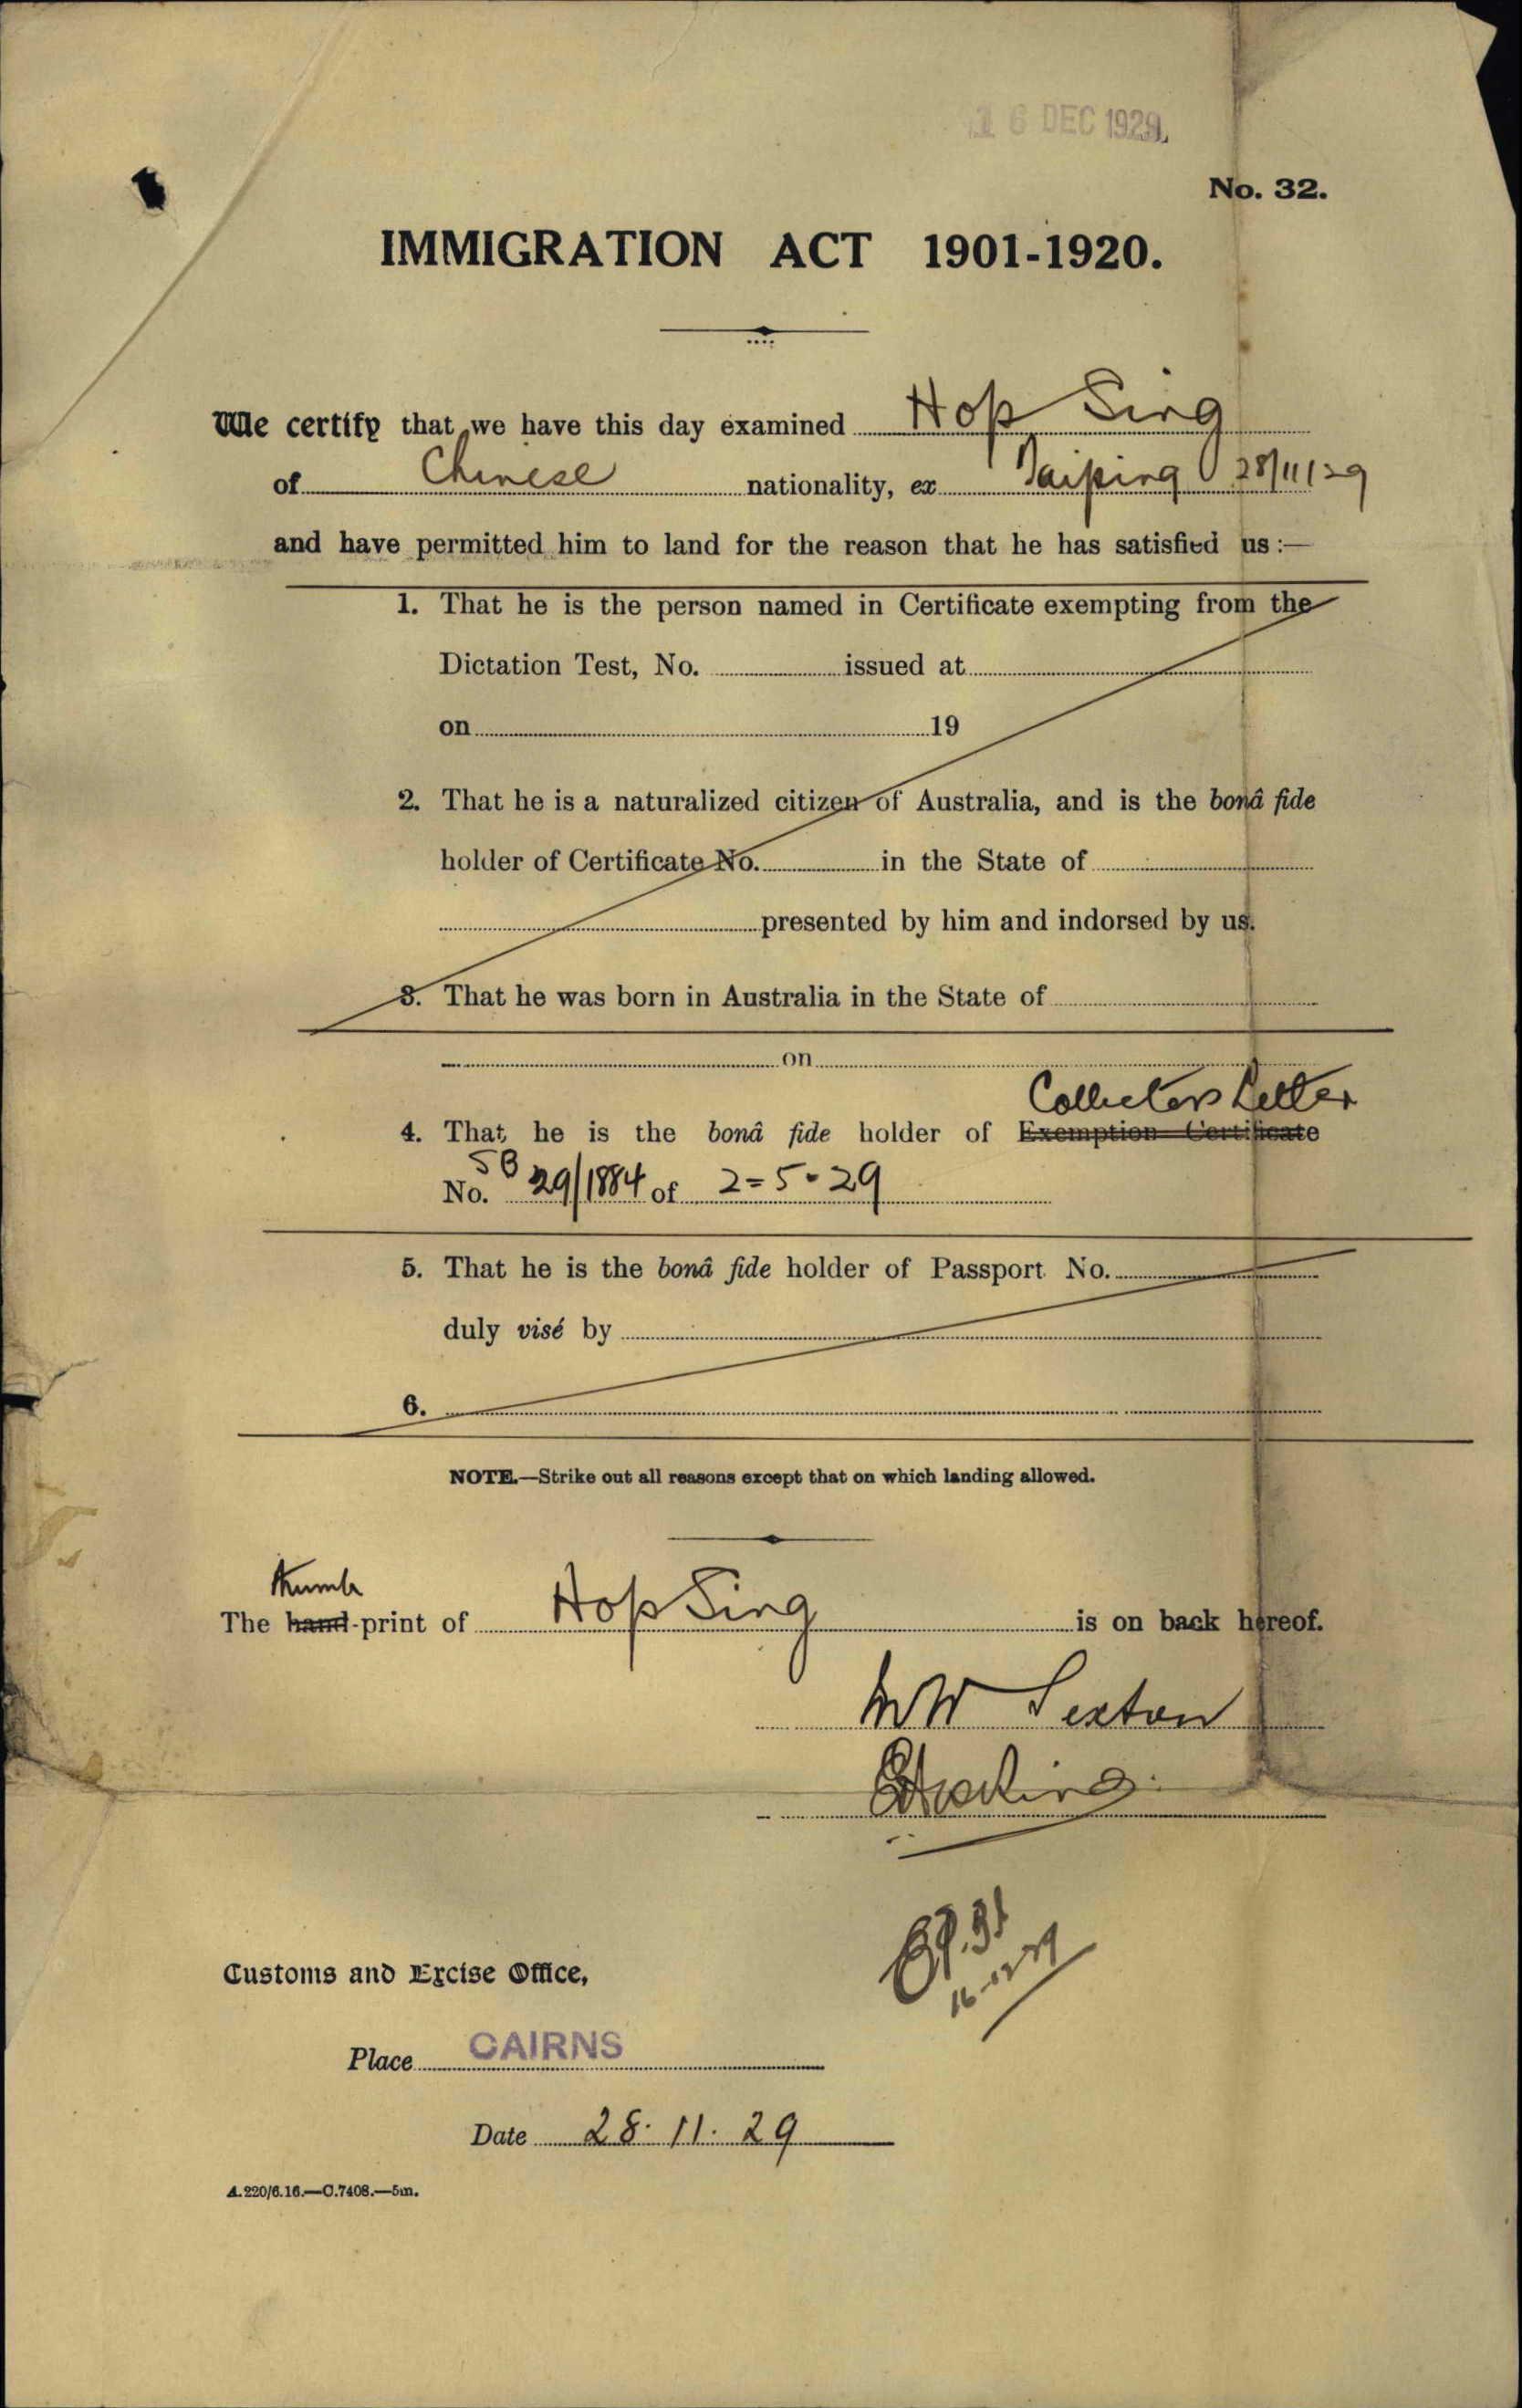 16 DEC 1929
No. 32.
IMMIGRATION ACT 1901-1920.
We certify that we have this day examined Hop Sing
of Chinese nationality, ex Taiping 28/11/29
and have permitted him to land for the reason that he has satisfied us:—
1. That he is the person named in Certificate exempting from the
Dictation Test, No. issued at
on 19
2. That he is a naturalized citizen of Australia, and is the bonâ fide
holder of Certificate No. in the State of
presented by him and indorsed by us.
3. That he was born in Australia in the State of
on
Collectors Letter
4. That he is the bonâ fide holder of Exemption Certificate
No. SB 29/1884 of 2-5-29
5. That he is the bonâ fide holder of Passport No.
duly visé by
6.
NOTE.—Strike out all reasons except that on which landing allowed.
thumb
The hand-print of Hop Sing is on back hereof.
Sexton
16-12-29
Customs and Excise Office,
Place CAIRNS
Date 28.11.29
A.220/6.16.—C.7408.—5m.